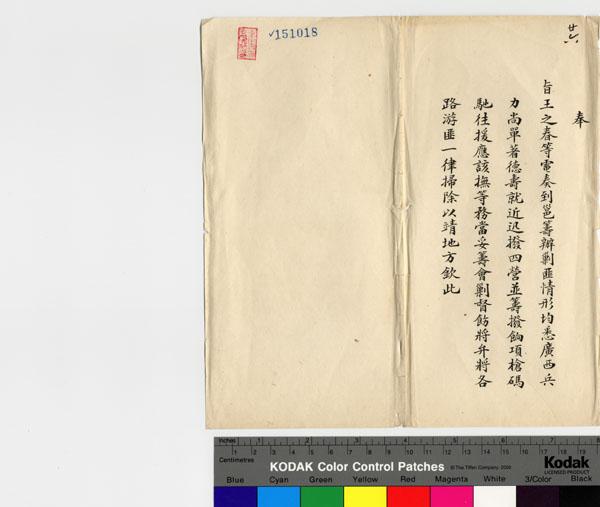 廿六
奉
旨王之春等電奏到邕籌辦剿匪情形均悉廣西兵
力尚單著德壽就近迅撥四營並籌撥餉項槍碼
馳往援應該撫等務當妥籌會剿督飭將弁將各
路游匪一律掃除以靖地方欽此
151018
Inches
Centimetres
KODAK Color Control Patches
© The Tiffen Company, 2000
Kodak
LICENSED PRODUCT
Blue Cyan Green Yellow Red Magenta White 3/Color Black